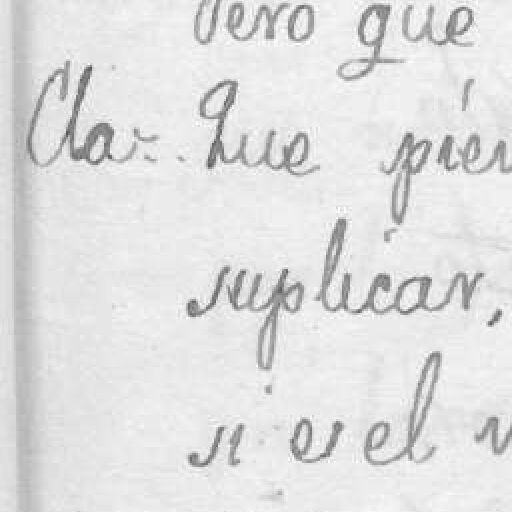 Pero que
Cla-. Que pien
suplicar,
si es el